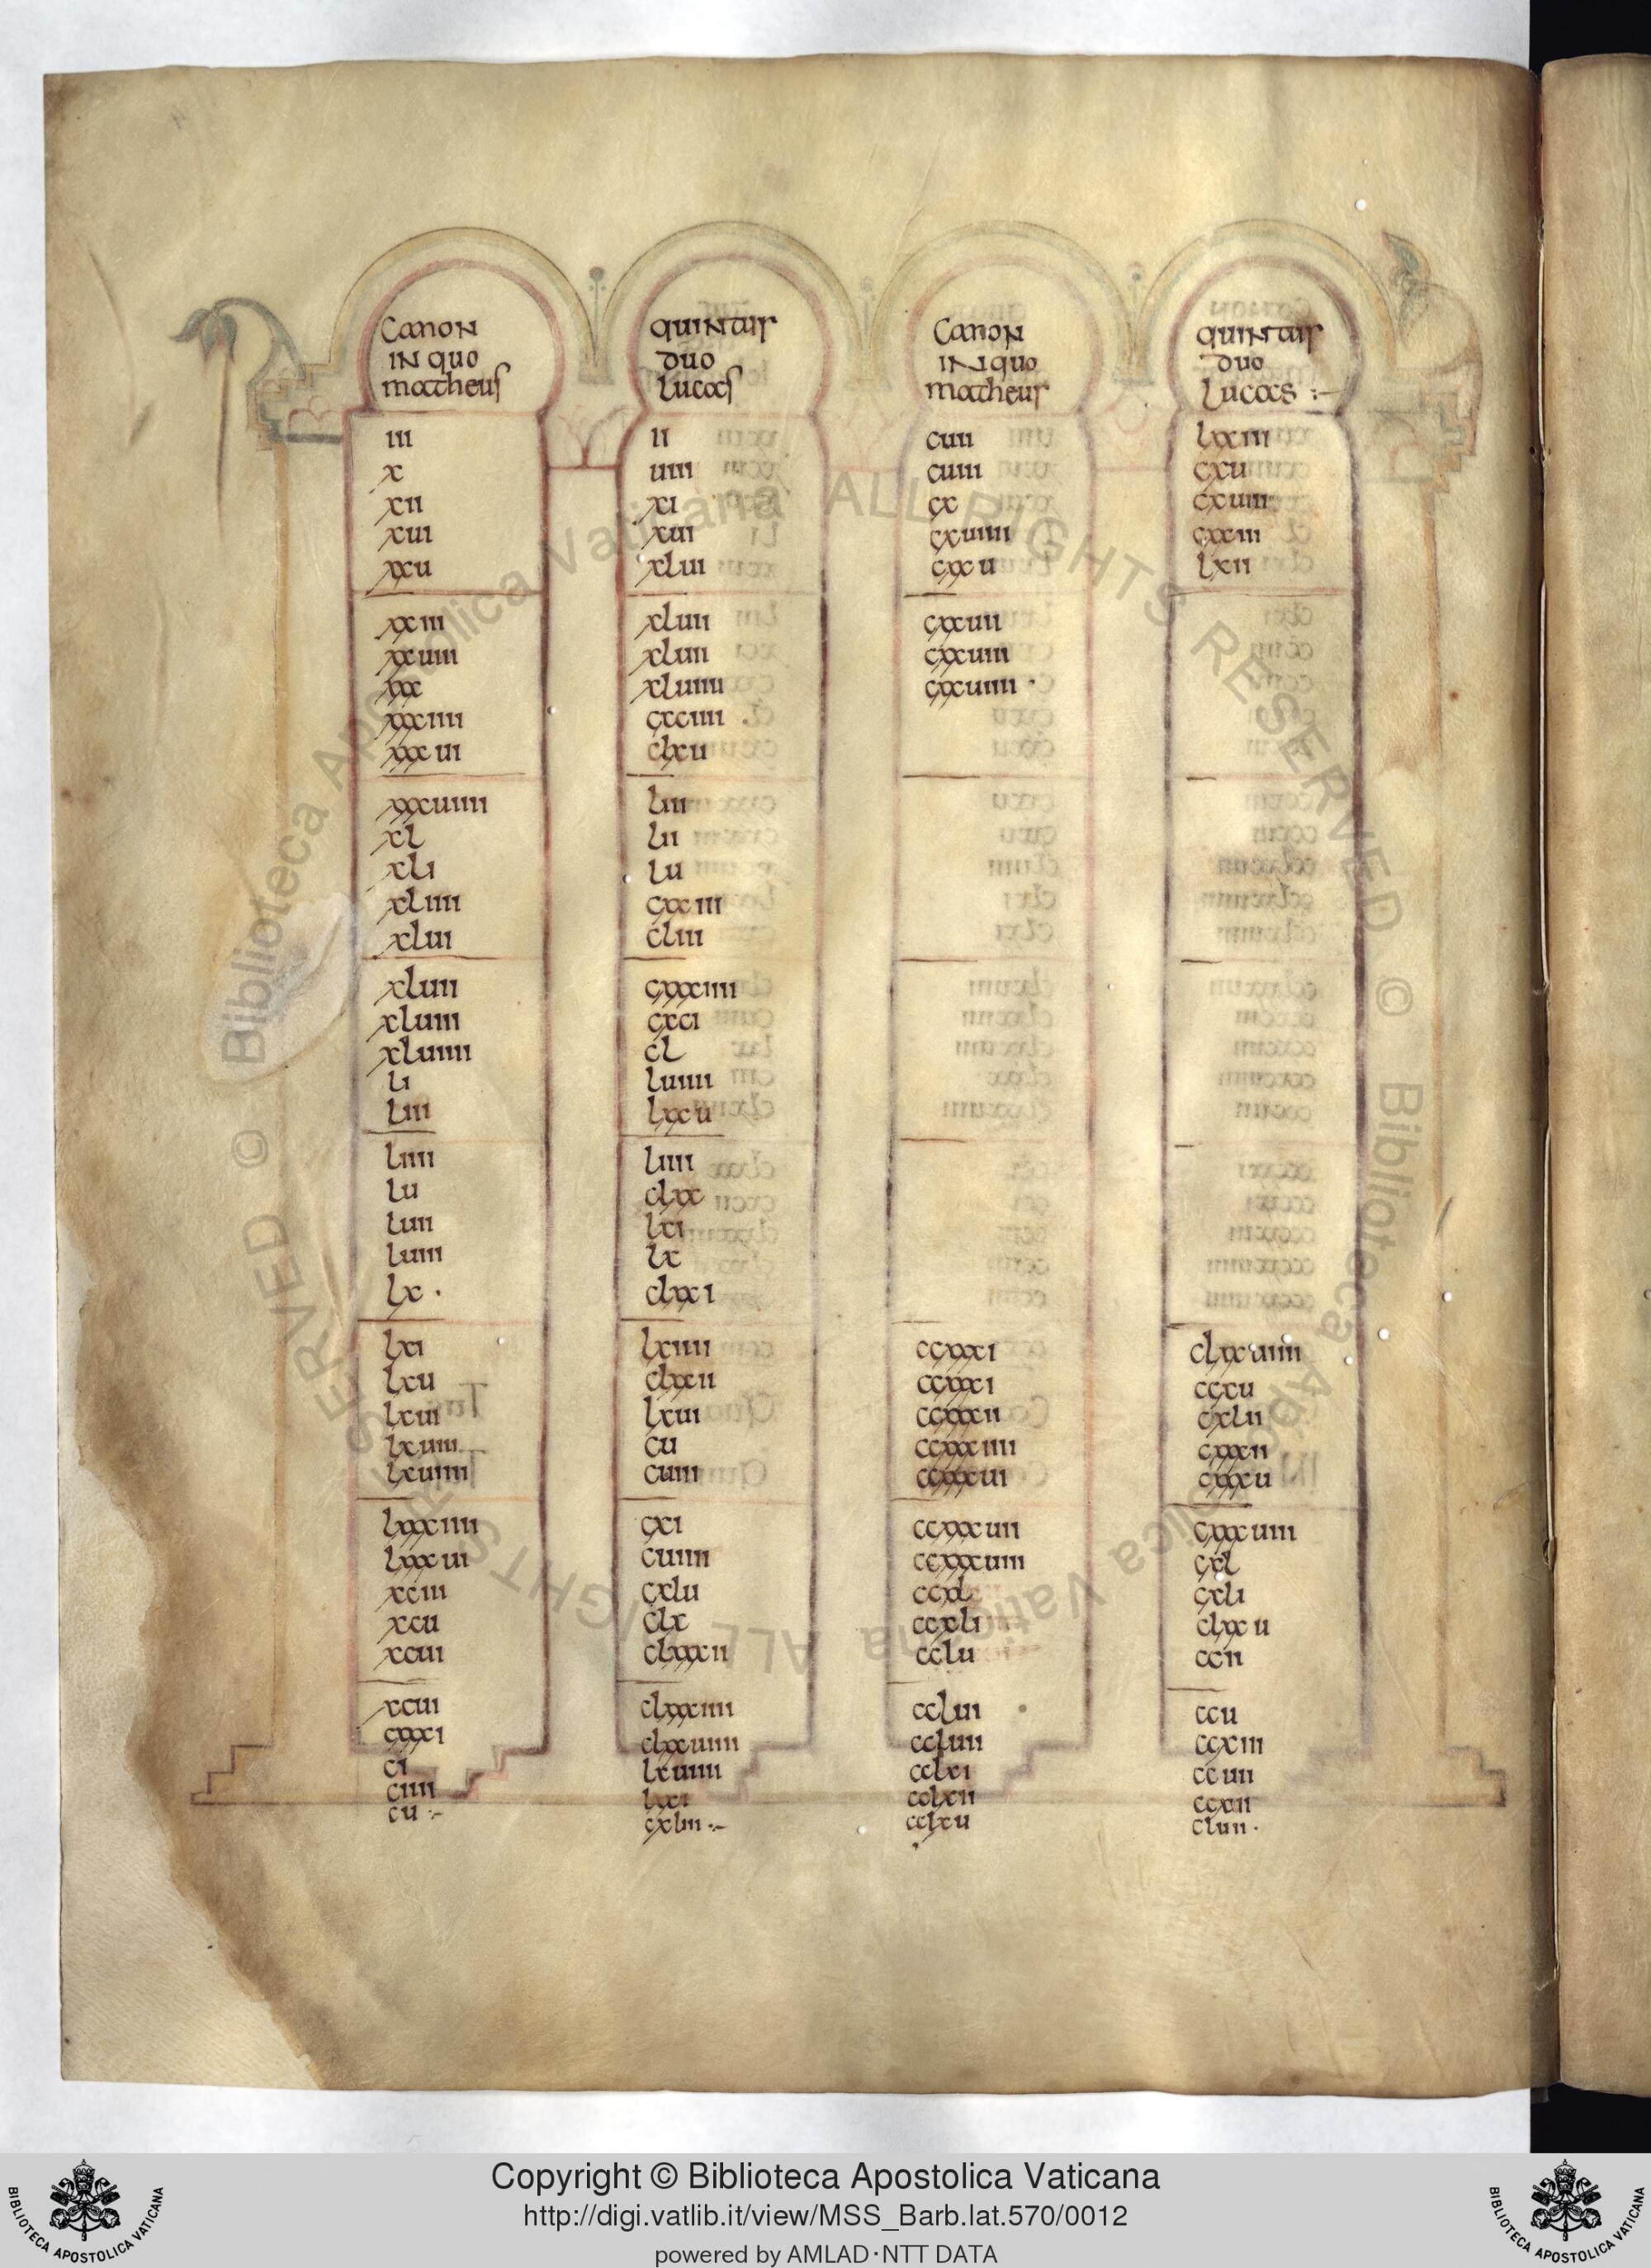 Canon quintus Canon quintus
in quo duo in quo duo
matheus lucas matheus lucas :-
iii ii cuii lxxiii
x uiii cuiii cxu
xii xi cx cxuiii
xui xui cxuiiii cxxiii
xxu xlui cxxu lxii
xxiii xluii cxxuii
xxuiii xluii cxxuiii
xxx xluiiii cxxuiiii
xxxiiii cxciiii
xxxui clxu
xxxuiiii liii
xl lii
xli lu
xliiii cxxiii
xlui cliii
xluii cxxxiiii
xluiii cxci
xluiiii cl
li luiiii
liii lxxu
liiii liiii
lu clxx
luii lxi
luiii lx
lx · clxxi
lxi lxiiii ccxxxi clxxuiiii
lxu clxxii ccxxxi ccxu
lxui lxui ccxxxii cxlii
lxuiii cu ccxxxiiii cxxxii
lxuiiii cuiii ccxxxui cxxxu
lxxxiiii cxi ccxxxuii cxxxuiii
lxxxui cuiiii ccxxxuiii cxl
xciii cxlu ccxl cxli
xcu clx ccxli clxxu
xcui clxxxii cclu ccii
xcuii clxxxiiii cclui ccu
cxxxi clxxuiiii ccluii ccxiii
ci lxuiiii cclxi ccuii
ciiii lxxi cclxii ccxii
cu :- cxliii :- cclxu cluii ·
Copyright © Biblioteca Apostolica Vaticana
http://digi.vatlib.it/view/MSS_Barb.lat.570/0012
powered by AMLAD·NTT DATA
BIBLIOTECA APOSTOLICA VATICANA
BIBLIOTECA APOSTOLICA VATICANA